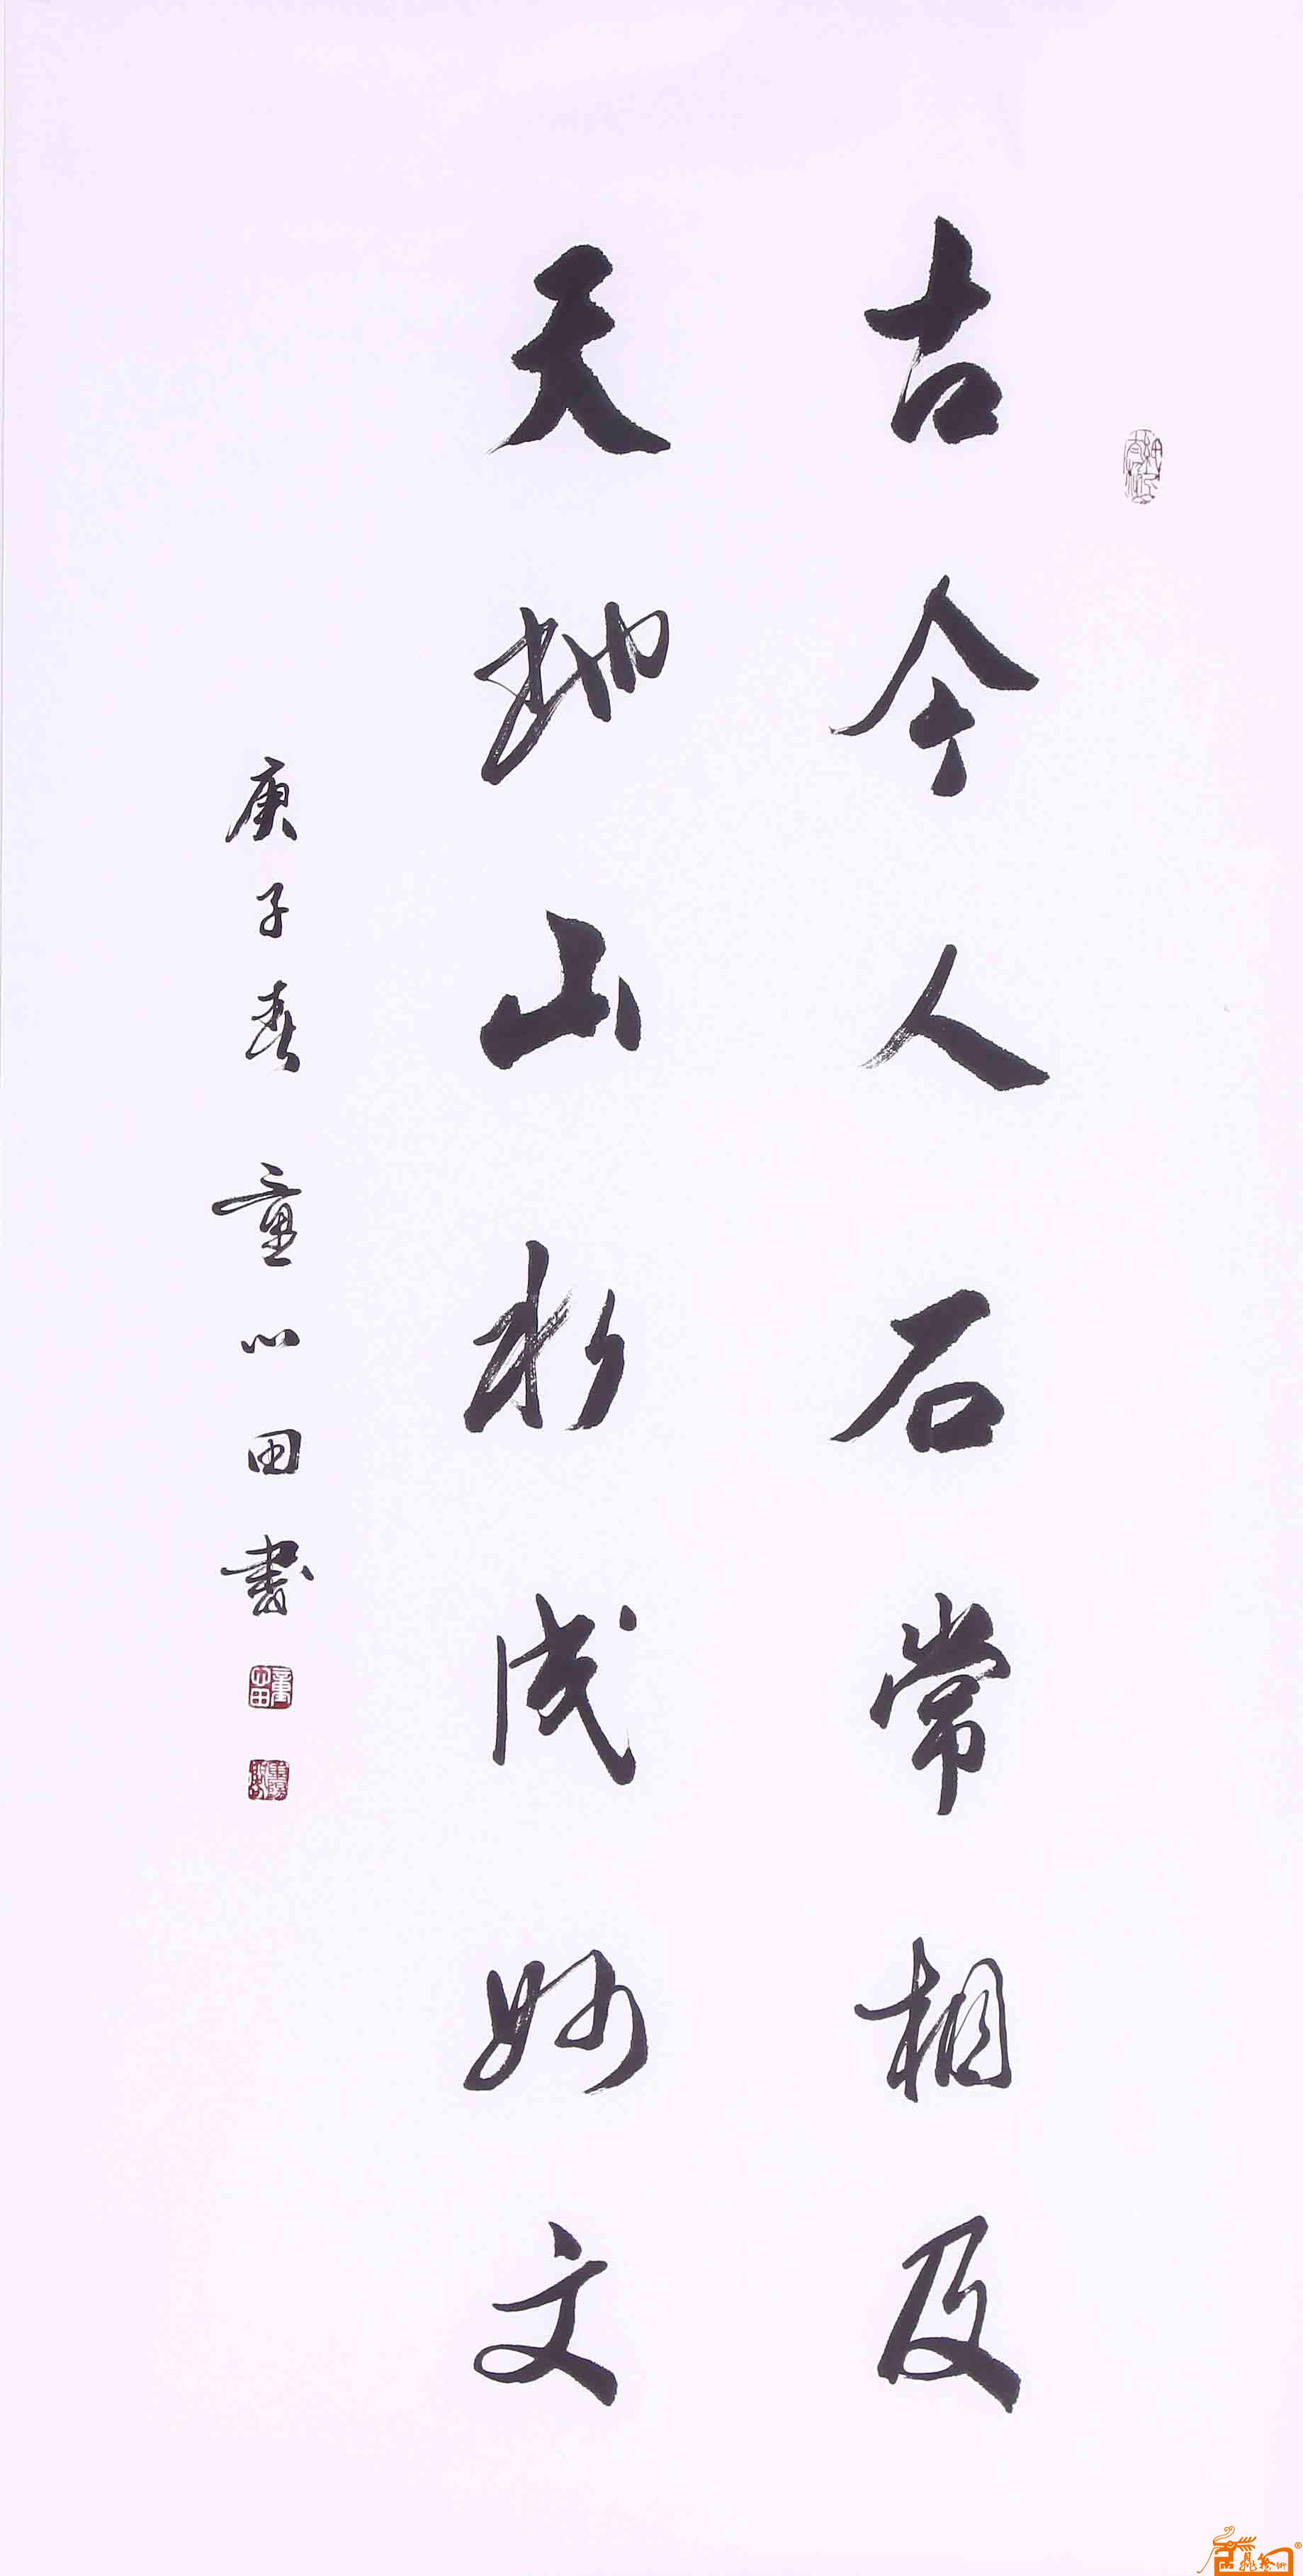 古今人石常相及
天地山水成妙文
庚子春 童心田書
童心田